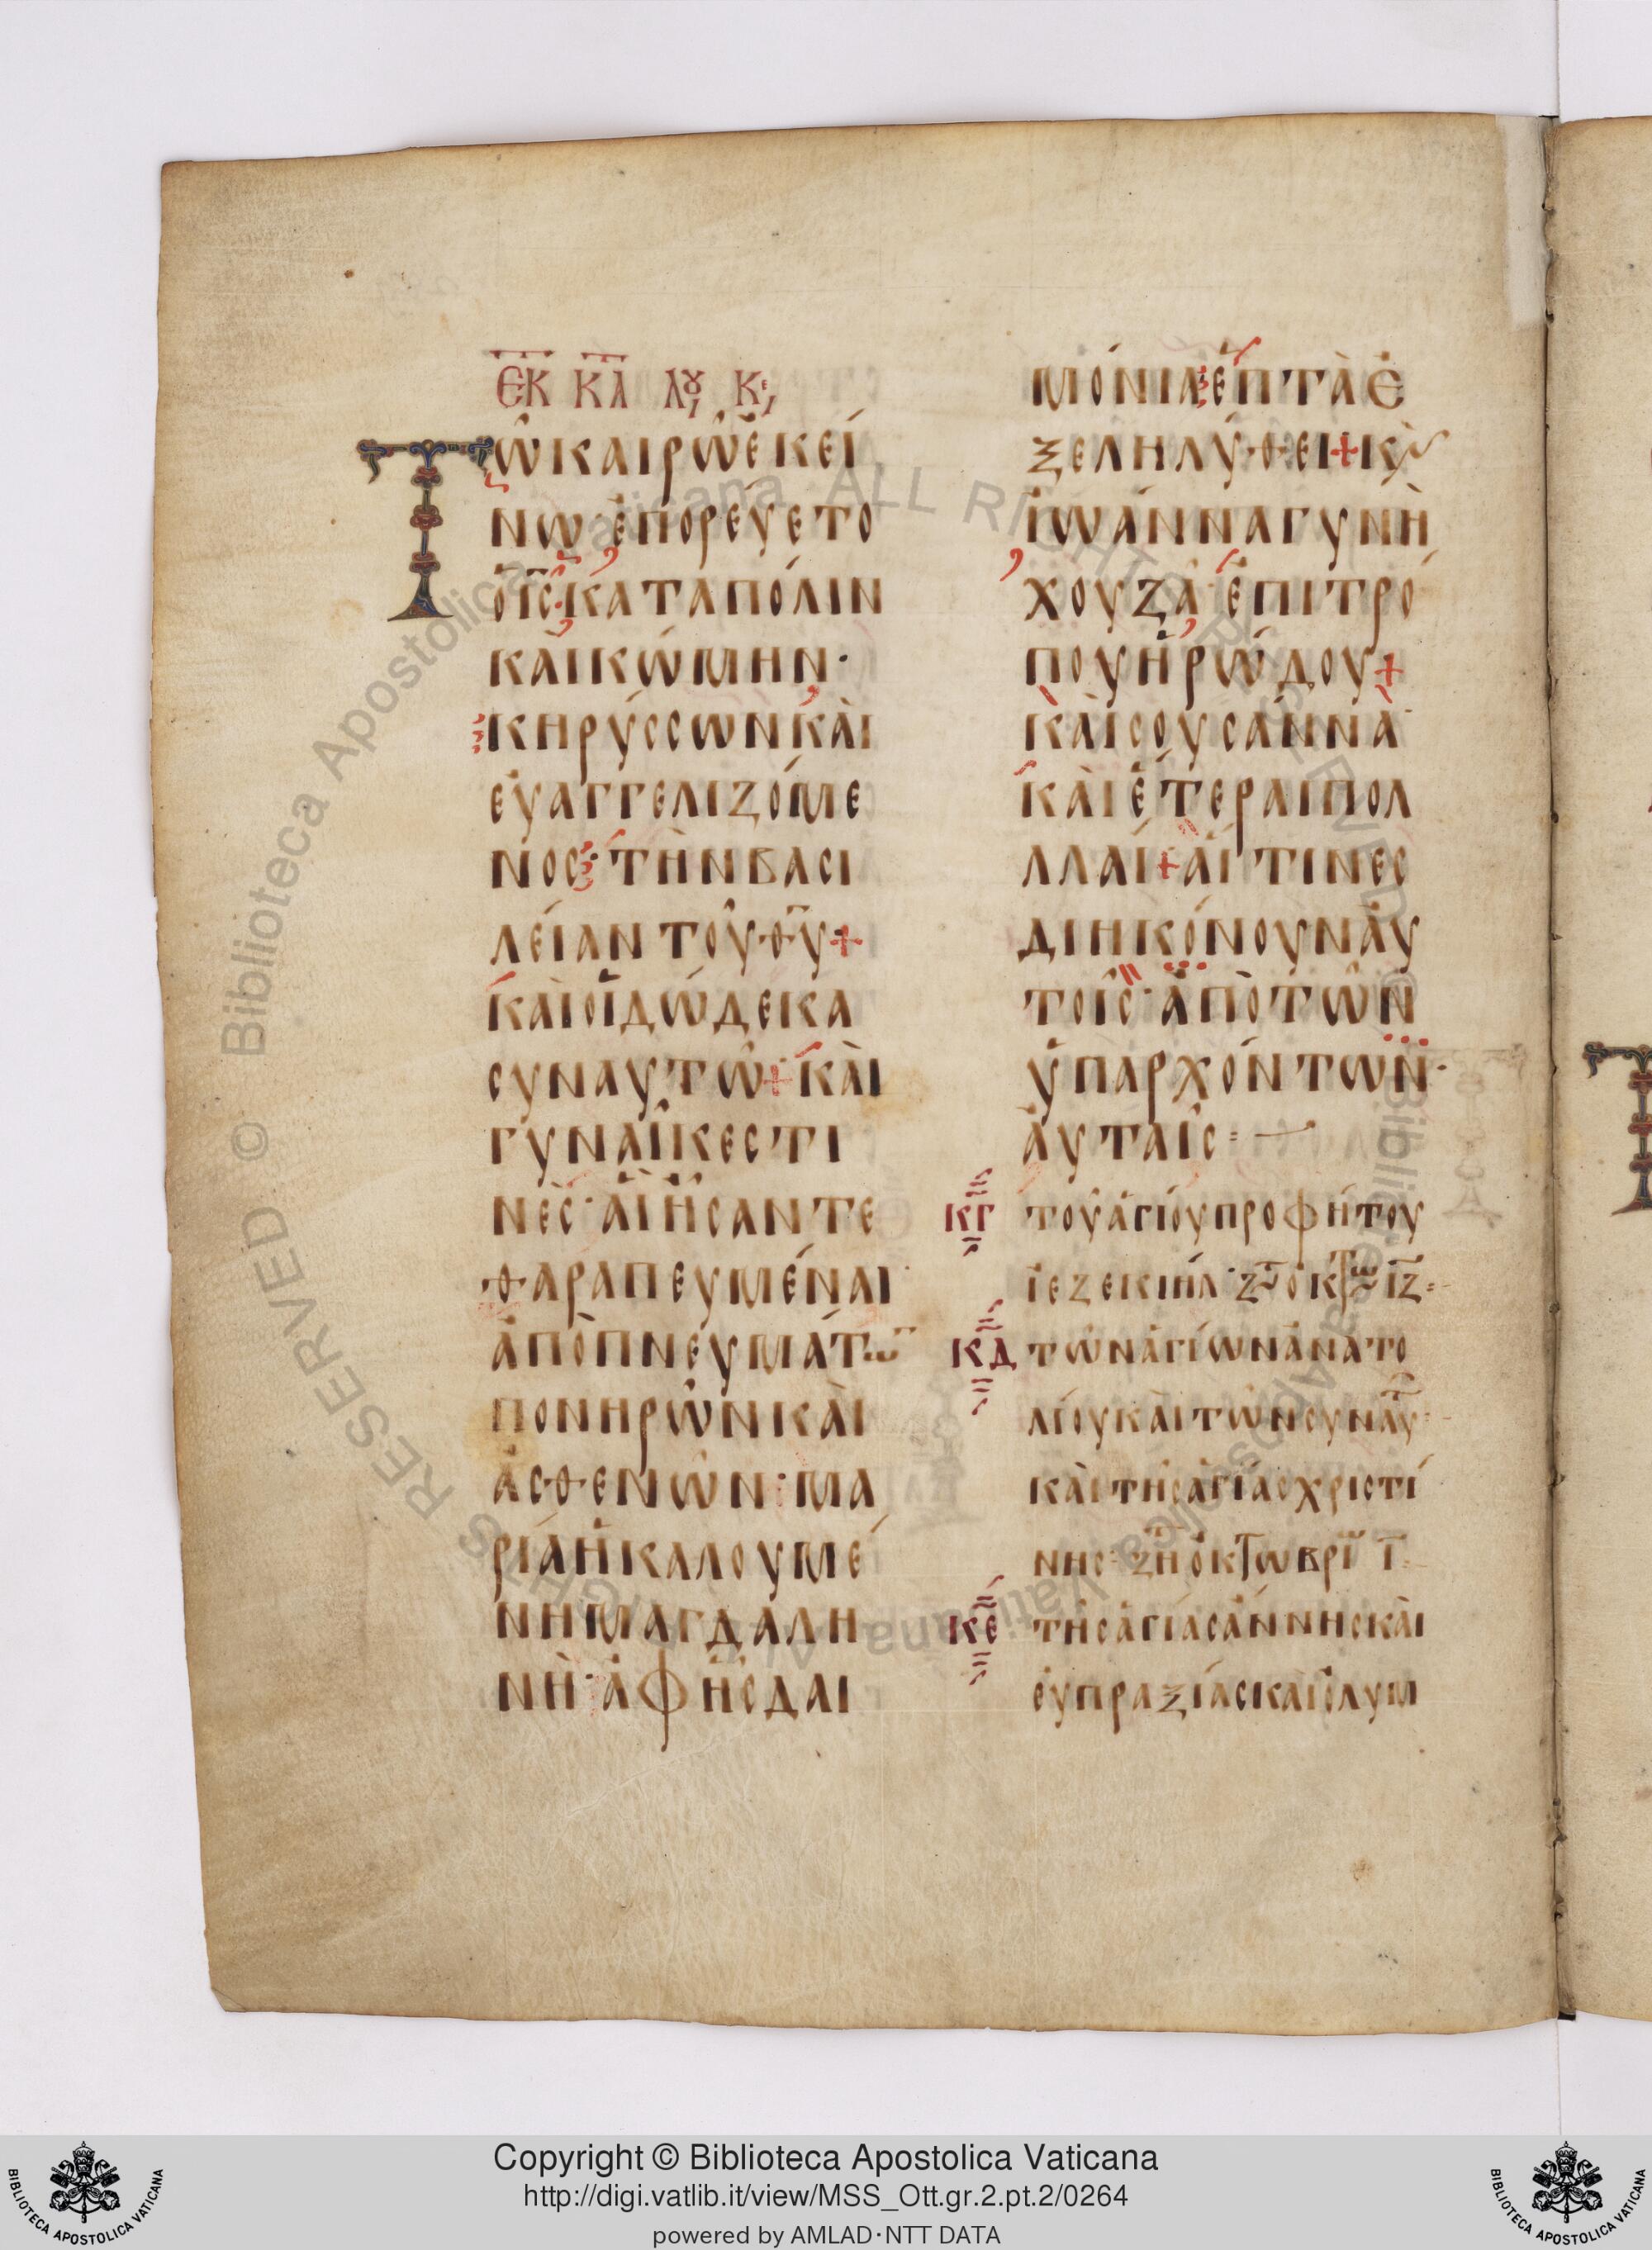 ΕΚ ΚΛ ΛΟΥ ΚΕ
ΤΩ ΚΑΙΡΩ ΕΚΕΙ
ΝΩ· ΕΠΟΡΕΥΕΤΟ
Ο ΙΣ ΚΑΤΑ ΠΟΛΙΝ
ΚΑΙ ΚΩΜΗΝ·
ΚΗΡΥΣΣΩΝ ΚΑΙ
ΕΥΑΓΓΕΛΙΖΟΜΕ
ΝΟΣ· ΤΗΝ ΒΑΣΙ
ΛΕΙΑΝ ΤΟΥ ΘΥ+
ΚΑΙ ΟΙ ΔΩΔΕΚΑ
ΣΥΝ ΑΥΤΩ+ ΚΑΙ
ΓΥΝΑΙΚΕΣ ΤΙ
ΝΕΣ· ΑΙ ΗΣΑΝ ΤΕ
ΘΑΡΑΠΕΥΜΕΝΑΙ·
ΑΠΟ ΠΝΕΥΜΑΤΩ
ΠΟΝΗΡΩΝ ΚΑΙ
ΑΣΘΕΝΩΝ· ΜΑ
ΡΙΑ Η ΚΑΛΟΥΜΕ
ΝΗ ΜΑΓΔΑΛΗ
ΝΗ· ΑΦ ΗΣ ΔΑΙ
ΜΟΝΙΑ ΕΠΤΑ Ε
ΞΕΛΗΛΥΘΕΙ+ Κ
ΙΩΑΝΝΑ ΓΥΝΗ
ΧΟΥΖΑ ΕΠΙΤΡΟ
ΠΟΥ ΗΡΩΔΟΥ+
ΚΑΙ ΣΟΥΣΑΝΝΑ·
ΚΑΙ ΕΤΕΡΑΙ ΠΟΛ
ΛΛΑΙ+ ΑΙΤΙΝΕΣ
ΔΙΗΚΟΝΟΥΝ ΑΥ
ΤΟΙΣ· ΑΠΟ ΤΩΝ
ΥΠΑΡΧΟΝΤΩΝ·
ΑΥΤΑΙΣ
ΚΓ ΤΟΥ ΑΓΙΟΥ ΠΡΟΦΗΤΟΥ
ΙΕΖΕΚΙΗΛ· ΖΤ ΟΚΤΩ ΙΖ
ΚΔ ΤΩΝ ΑΓΙΩΝ ΑΝΑΤΟ
ΛΙΟΥ ΚΑΙ ΤΩΝ ΣΥΝ ΑΥ
ΚΑΙ ΤΗΣ ΑΓΙΑΣ ΧΡΙΣΤΙ
ΝΗΣ· ΖΗ ΟΚΤΩΒΡΙ Γ
ΚΕ ΤΗΣ ΑΓΙΑΣ ΑΝΝΗΣ ΚΑΙ
ΕΥΠΡΑΞΙΑΣ ΚΑΙ ΟΛΥΜ
© Biblioteca Apostolica Vaticana ALL RIGHTS RESERVED
Copyright © Biblioteca Apostolica Vaticana
http://digi.vatlib.it/view/MSS_Ott.gr.2.pt.2/0264
powered by AMLAD·NTT DATA
BIBLIOTECA APOSTOLICA VATICANA
BIBLIOTECA APOSTOLICA VATICANA